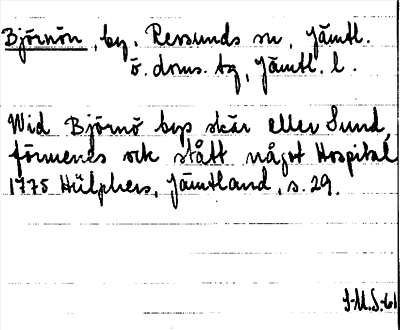 Björnön, by, Revsunds sn, Jämtl.
ö. doms. tg, Jämtl. l.
Wid Björnö bys skär eller Sund,
förmenes ock stått något Hospital
1775 Hülphers, Jämtland, s. 29.